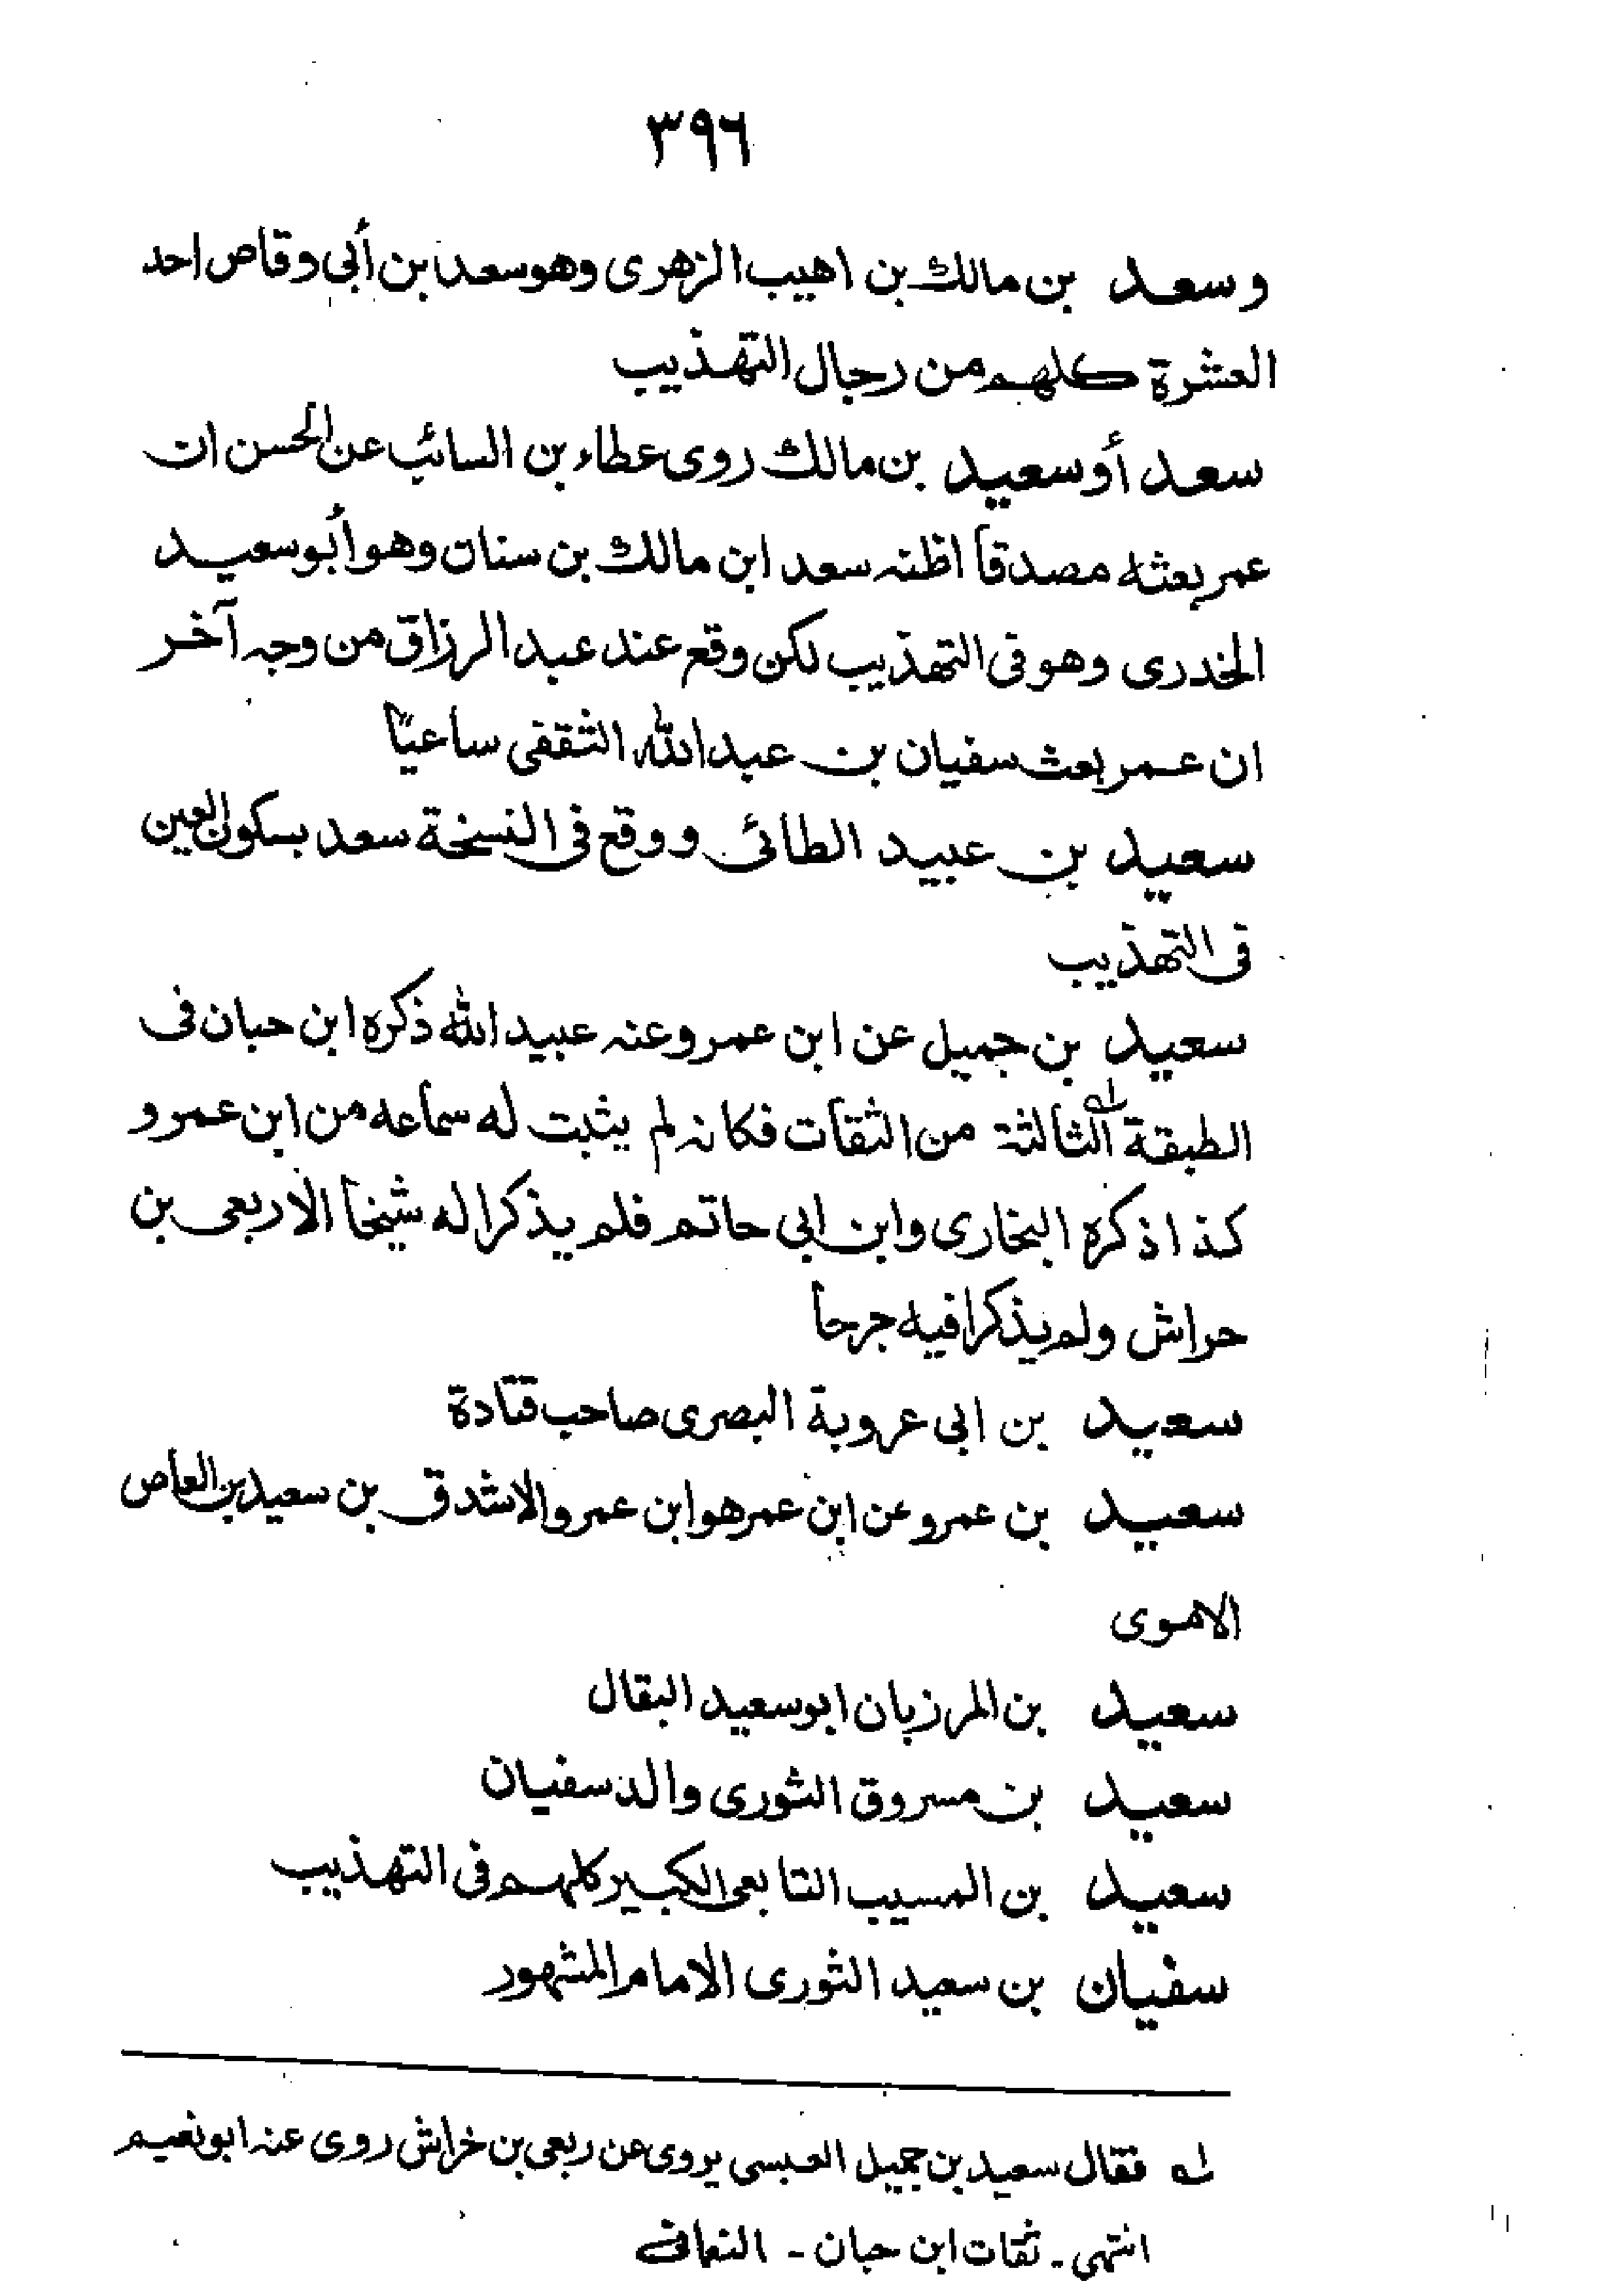 ٣٩٦
وسعد بن مالك بن اهيب الزهرى وهو سعد ابن أبى وقاص احد
العشرة كلهم من رجال التهذيب
سعد أو سعيد بن مالك روى عطاء بن السائب عن الحسن ان
عمر بعثه مصدقا اظنه سعد ابن مالك بن سنان وهو أبو سعيد
الخدرى وهو فى التهذيب لكن وقع عند عبد الرزاق من وجه آخر
ان عمر بعث سفيان بن عبد الله الثقفى ساعيّا
سعيد بن عبيد الطائى ووقع فى النسخة سعد بسكون العين
فى التهذيب
سعيد بن جميل عن ابن عمر وعنه عبيد الله ذكره ابن حبان فى
الطبقة الثالثة له من الثقات فكانه لم يثبت له سماعه من ابن عمر و
كذا ذكره البخارى وابن ابى حاتم فلم يذكرا له شيخا الا ربعى بن
حراش ولم يذكرا فيه جرحا
سعيد بن ابى عروبة البصرى صاحب قتادة
سعيد بن عمرو عن ابن عمر هو ابن عمرو الاشدق بن سعيد بن العاص
الاموى
سعيد بن المرزبان ابو سعيد البقال
سعيد بن مسروق الثورى والد سفيان
سعيد بن المسيب التابعى الكبير كلهم فى التهذيب
سفيان بن سعيد الثورى الامام المشهور
له فقال سعيد بن جميل العبسى يروى عن ربعى بن خراش روى عنه ابو نعيم
انتهى ـ ثقات ابن حبان ـ النعمانى